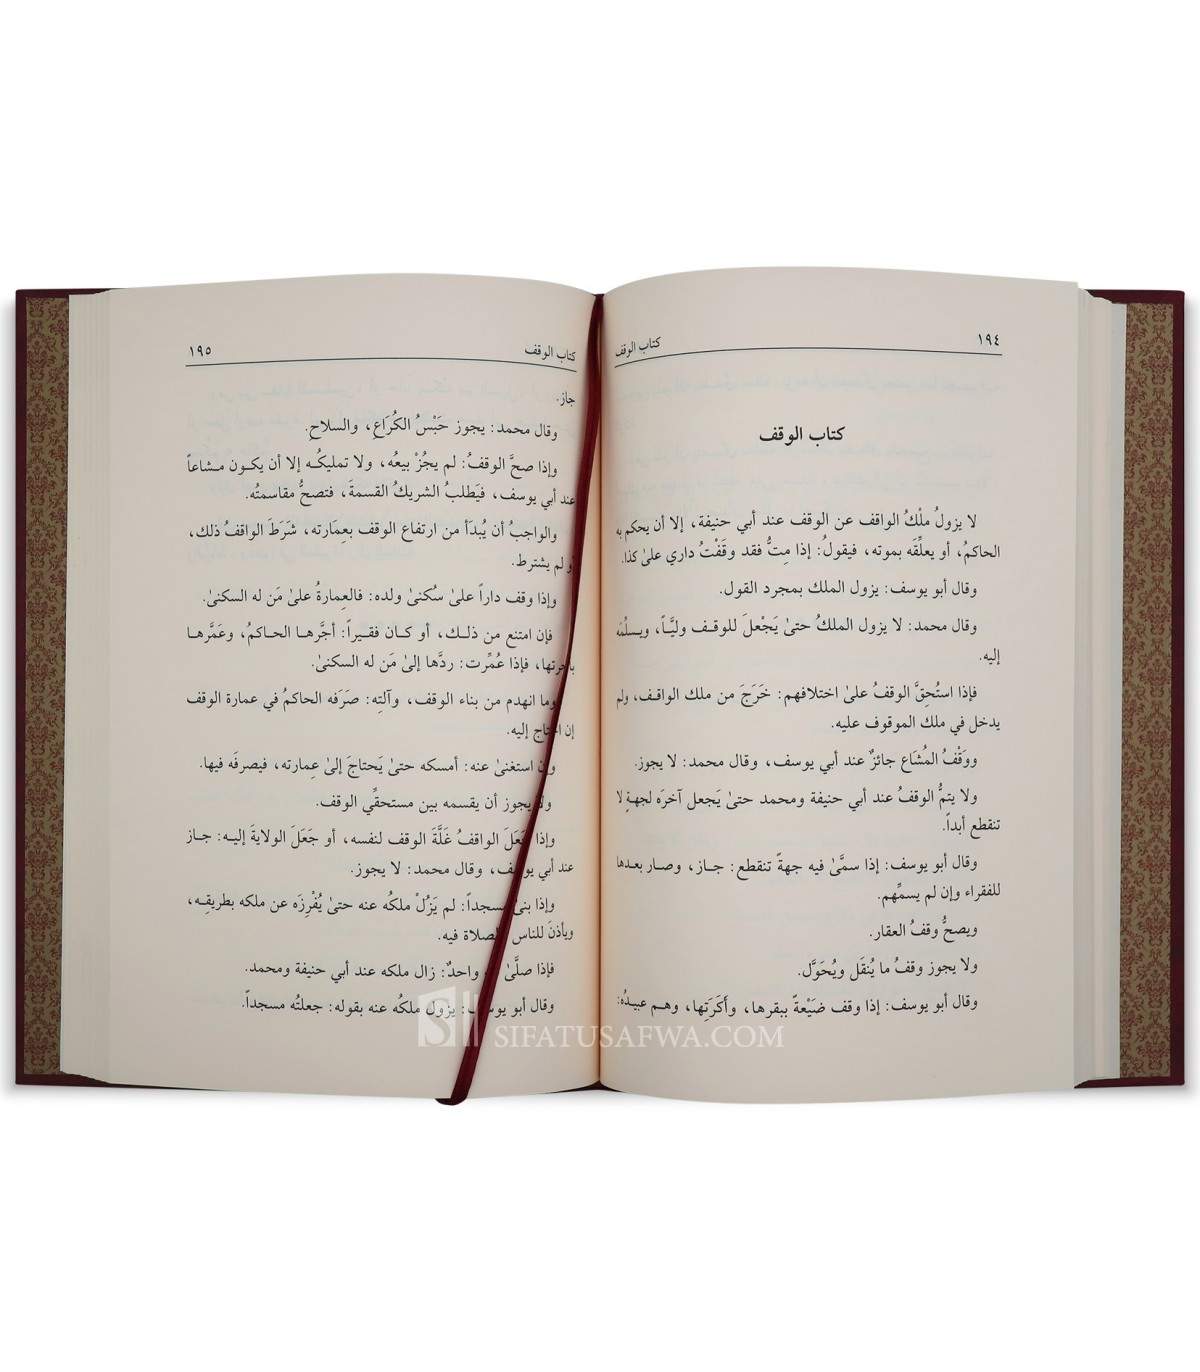 ١٩٤
كتاب الوقف
كتاب الوقف
لا يزولُ ملْكُ الواقف عن الوقف عند أبي حنيفة، إلا أن يحكم به
الحاكمُ، أو يعلِّقَه بموته، فيقولُ: إذا مِتُّ فقد وقَفْتُ داري علىٰ كذا.
وقال أبو يوسف: يزول الملك بمجرد القول.
وقال محمد: لا يزول الملكُ حتىٰ يَجْعلَ للوقـف وليَّاً، ويـسلِّمَه
إليه.
فإذا استُحِقَّ الوقفُ علىٰ اختلافهم: خَرَجَ من ملك الواقـف، ولم
يدخل في ملك الموقوف عليه.
ووَقْفُ المُشَاع جائزٌ عند أبي يوسف، وقال محمد: لا يجوز.
ولا يتمُّ الوقفُ عند أبي حنيفة ومحمد حتىٰ يَجعل آخرَه لجهةٍ لا
تنقطع أبداً.
وقال أبو يوسف: إذا سمَّىٰ فيه جهةً تنقطع: جـاز، وصـار بعـدها
للفقراء وإن لم يسمِّهم.
ويصحُّ وقفُ العقار.
ولا يجوز وقفُ ما يُنقَل ويُحَوَّل.
وقال أبو يوسف: إذا وقف ضَيْعةً ببقرها، وأَكَرَتِها، وهـم عبيدُه:
كتاب الوقف
١٩٥
جاز.
وقال محمد: يجوز حَبْسُ الكُرَاعِ، والسلاحِ.
وإذا صحَّ الوقفُ: لم يجُزْ بيعُه، ولا تمليكُـه إلا أن يكـون مـشاعاً
عند أبي يوسف، فيَطلبُ الشريكُ القسمةَ، فتصحُّ مقاسمتُه.
والواجبُ أن يُبدَأ من ارتفاع الوقف بعِمَارته، شَرَطَ الواقفُ ذلك،
أو لم يشترط.
وإذا وقف داراً علىٰ سُكنىٰ ولده: فالعِمارةُ علىٰ مَن له السكنىٰ.
فإن امتنع من ذلـك، أو كـان فقـيراً: أجَّرهـا الحـاكمُ، وعَمَّرهـا
بأجرتها، فإذا عُمِّرت: ردَّها إلىٰ مَن له السكنىٰ.
وما انهدم من بناء الوقف، وآلتِه: صرَفَه الحاكمُ في عمارة الوقف
إن احتاج إليه.
وإن استغنىٰ عنه: أمسكه حتىٰ يَحتاجَ إلىٰ عِمارته، فيصرفَه فيها.
ولا يجوز أن يقسمه بين مستحقِّي الوقف.
وإذا جَعَلَ الواقفُ غَلَّةَ الوقف لنفسه، أو جَعَلَ الولايةَ إليـه: جـاز
عند أبي يوسف، وقال محمد: لا يجوز.
وإذا بنىٰ مسجداً: لم يَزُلْ ملكُه عنه حتىٰ يُفْرِزَه عن ملكه بطريقِـه،
ويأذنَ للناس بالصلاة فيه.
فإذا صلَّىٰ فيه واحدٌ: زال ملكه عند أبي حنيفة ومحمد.
وقال أبو يوسف: يزول ملكُه عنه بقوله: جعلتُه مسجداً.
SIFATUSAFWA.COM